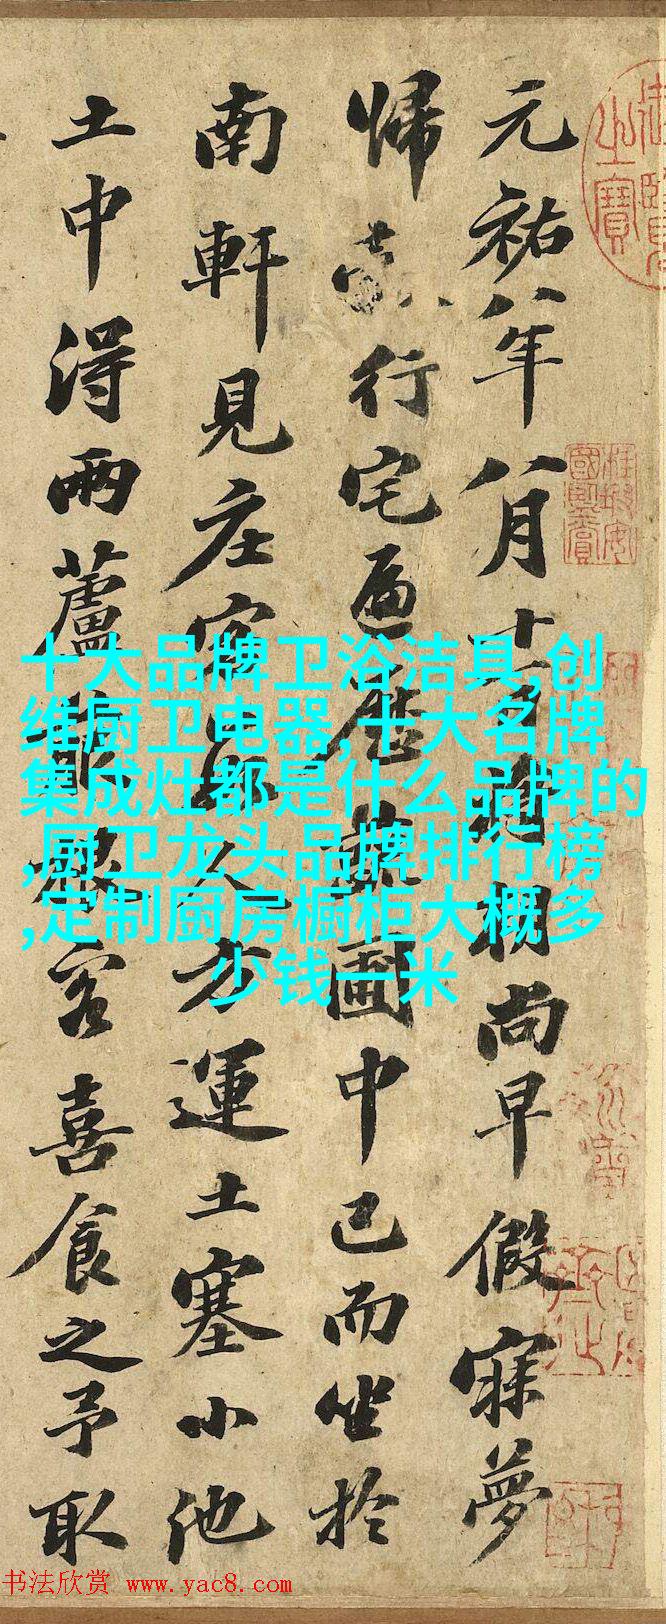 元祐八年八月十一日將朝尚早假寐夢
歸行宅遍歷蔬圃中已而坐於
南軒見庄客數人方運土塞小池
土中得兩蘆菔根客喜食之予取
十大品牌卫浴洁具,创
维厨卫电器,十大名牌
集成灶都是什么品牌的
,厨卫龙头品牌排行榜
,定制厨房橱柜大概多
少钱一米
书法欣赏 www.yac8.com